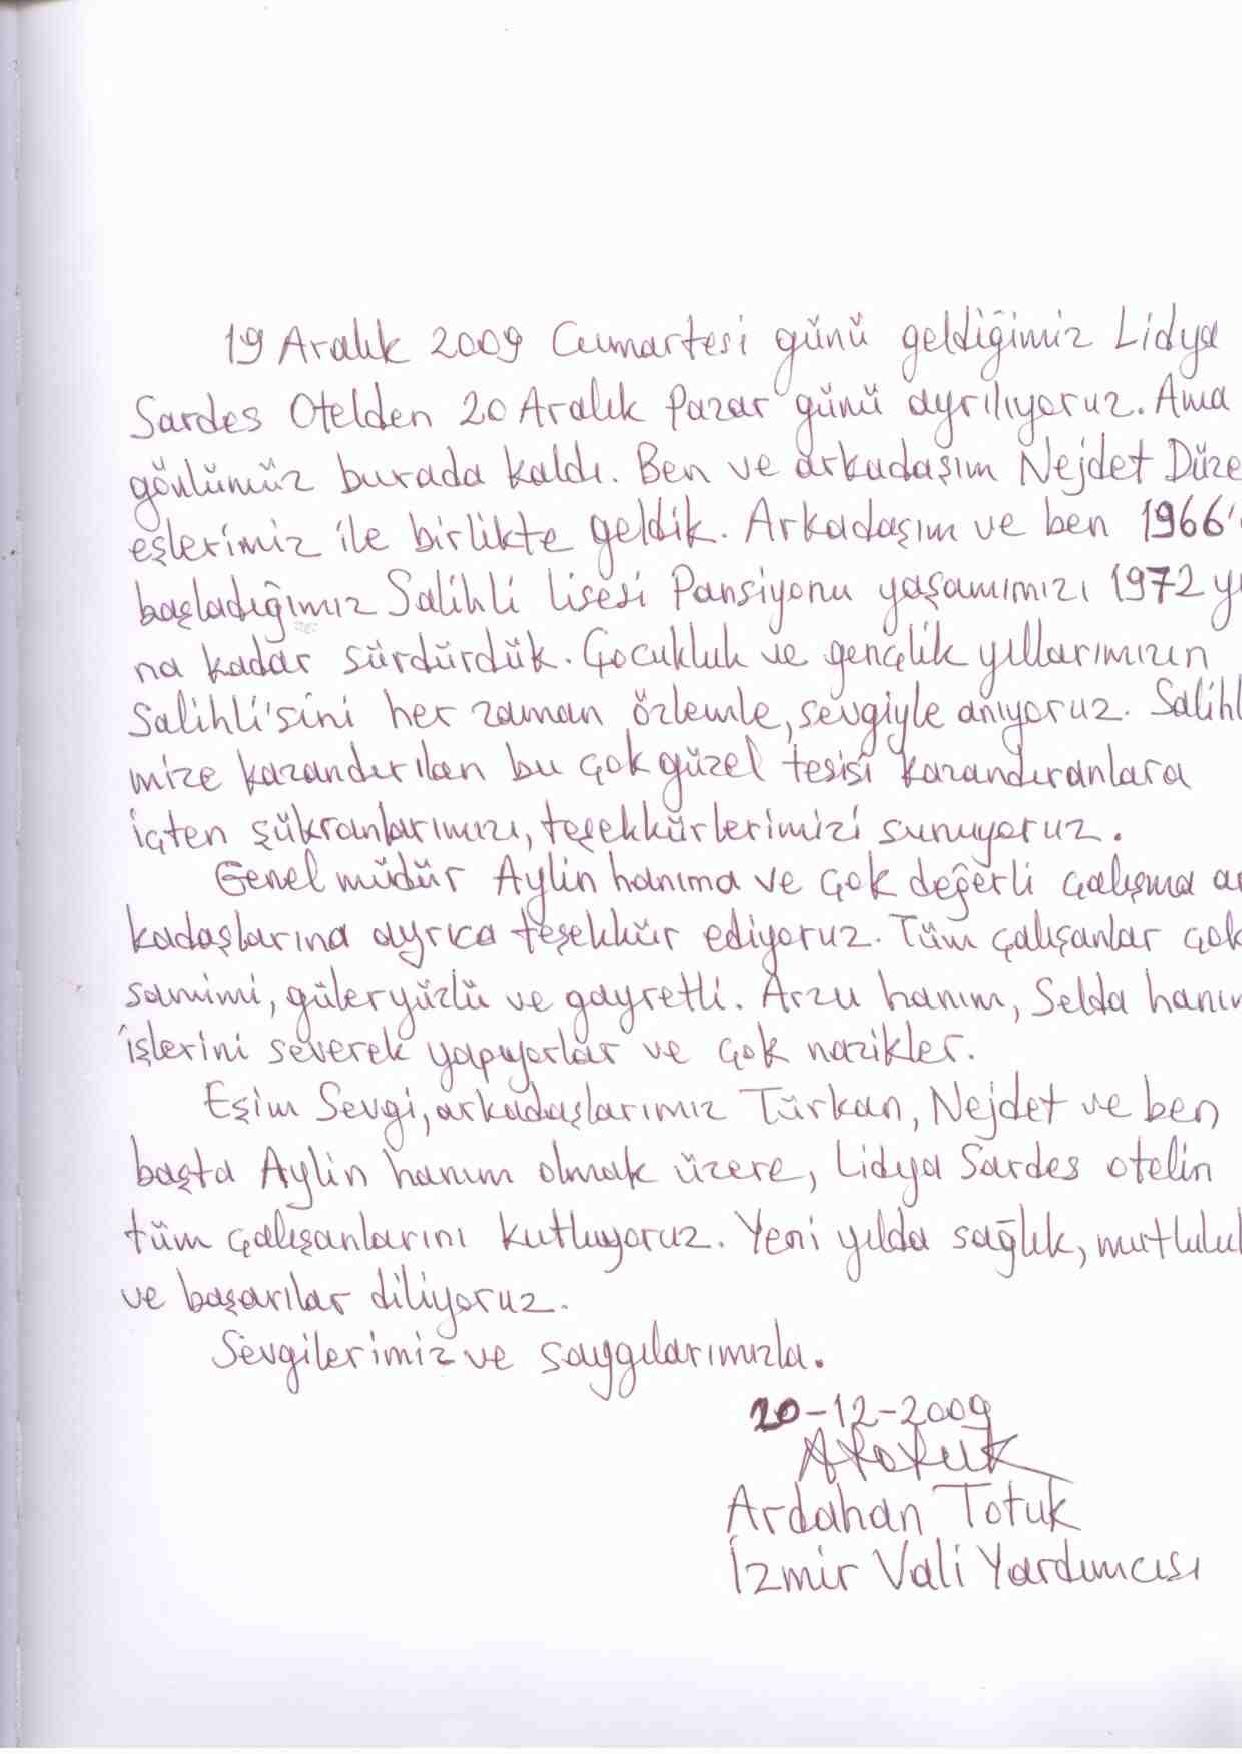 19 Aralık 2009 Cumartesi günü geldiğimiz Lidya
Sardes Otelden 20 Aralık Pazar günü ayrılıyoruz. Ama
gönlümüz burada kaldı. Ben ve arkadaşım Nejdet Düze
eşlerimiz ile birlikte geldik. Arkadaşım ve ben 1966'
başladığımız Salihli lisesi Pansiyonu yaşamımızı 1972 yı
na kadar sürdürdük. Çocukluk ve gençlik yıllarımızın
Salihli'sini her zaman özlemle, sevgiyle anıyoruz. Salihl
mize kazandırılan bu çok güzel tesisi kazandıranlara
içten şükranlarımızı, teşekkürlerimizi sunuyoruz.
Genel müdür Aylin hanıma ve çok değerli çalışma ar
kadaşlarına ayrıca teşekkür ediyoruz. Tüm çalışanlar çok
samimi, güleryüzlü ve gayretli. Arzu hanım, Selda hanım
işlerini severek yapıyorlar ve çok nazikler.
Eşim Sevgi, arkadaşlarımız Türkan, Nejdet ve ben
başta Aylin hanım olmak üzere, Lidya Sardes otelin
tüm çalışanlarını kutluyoruz. Yeni yılda sağlık, mutluluk
ve başarılar diliyoruz.
Sevgilerimiz ve saygılarımızla.
20-12-2009
Atotuk
Ardahan Totuk
İzmir Vali Yardımcısı